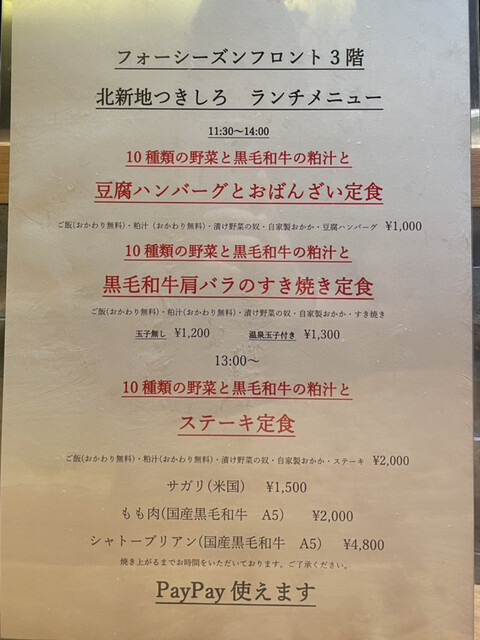 フォーシーズンフロント３階
北新地つきしろ　ランチメニュー
11:30～14:00
10 種類の野菜と黒毛和牛の粕汁と
豆腐ハンバーグとおばんざい定食
ご飯(おかわり無料)・粕汁 (おかわり無料)・漬け野菜の奴・自家製おかか・豆腐ハンバーグ　¥1,000
10 種類の野菜と黒毛和牛の粕汁と
黒毛和牛肩バラのすき焼き定食
ご飯(おかわり無料)・粕汁(おかわり無料)・漬け野菜の奴・自家製おかか・すき焼き
玉子無し　¥1,200　　温泉玉子付き　¥1,300
13:00～
10 種類の野菜と黒毛和牛の粕汁と
ステーキ定食
ご飯(おかわり無料)・粕汁(おかわり無料)・漬け野菜の奴・自家製おかか・ステーキ　¥2,000
サガリ(米国)　¥1,500
もも肉(国産黒毛和牛　A5)　　¥2,000
シャトーブリアン(国産黒毛和牛　A5)　¥4,800
焼き上がるまでお時間をいただいております。ご了承ください。
PayPay 使えます